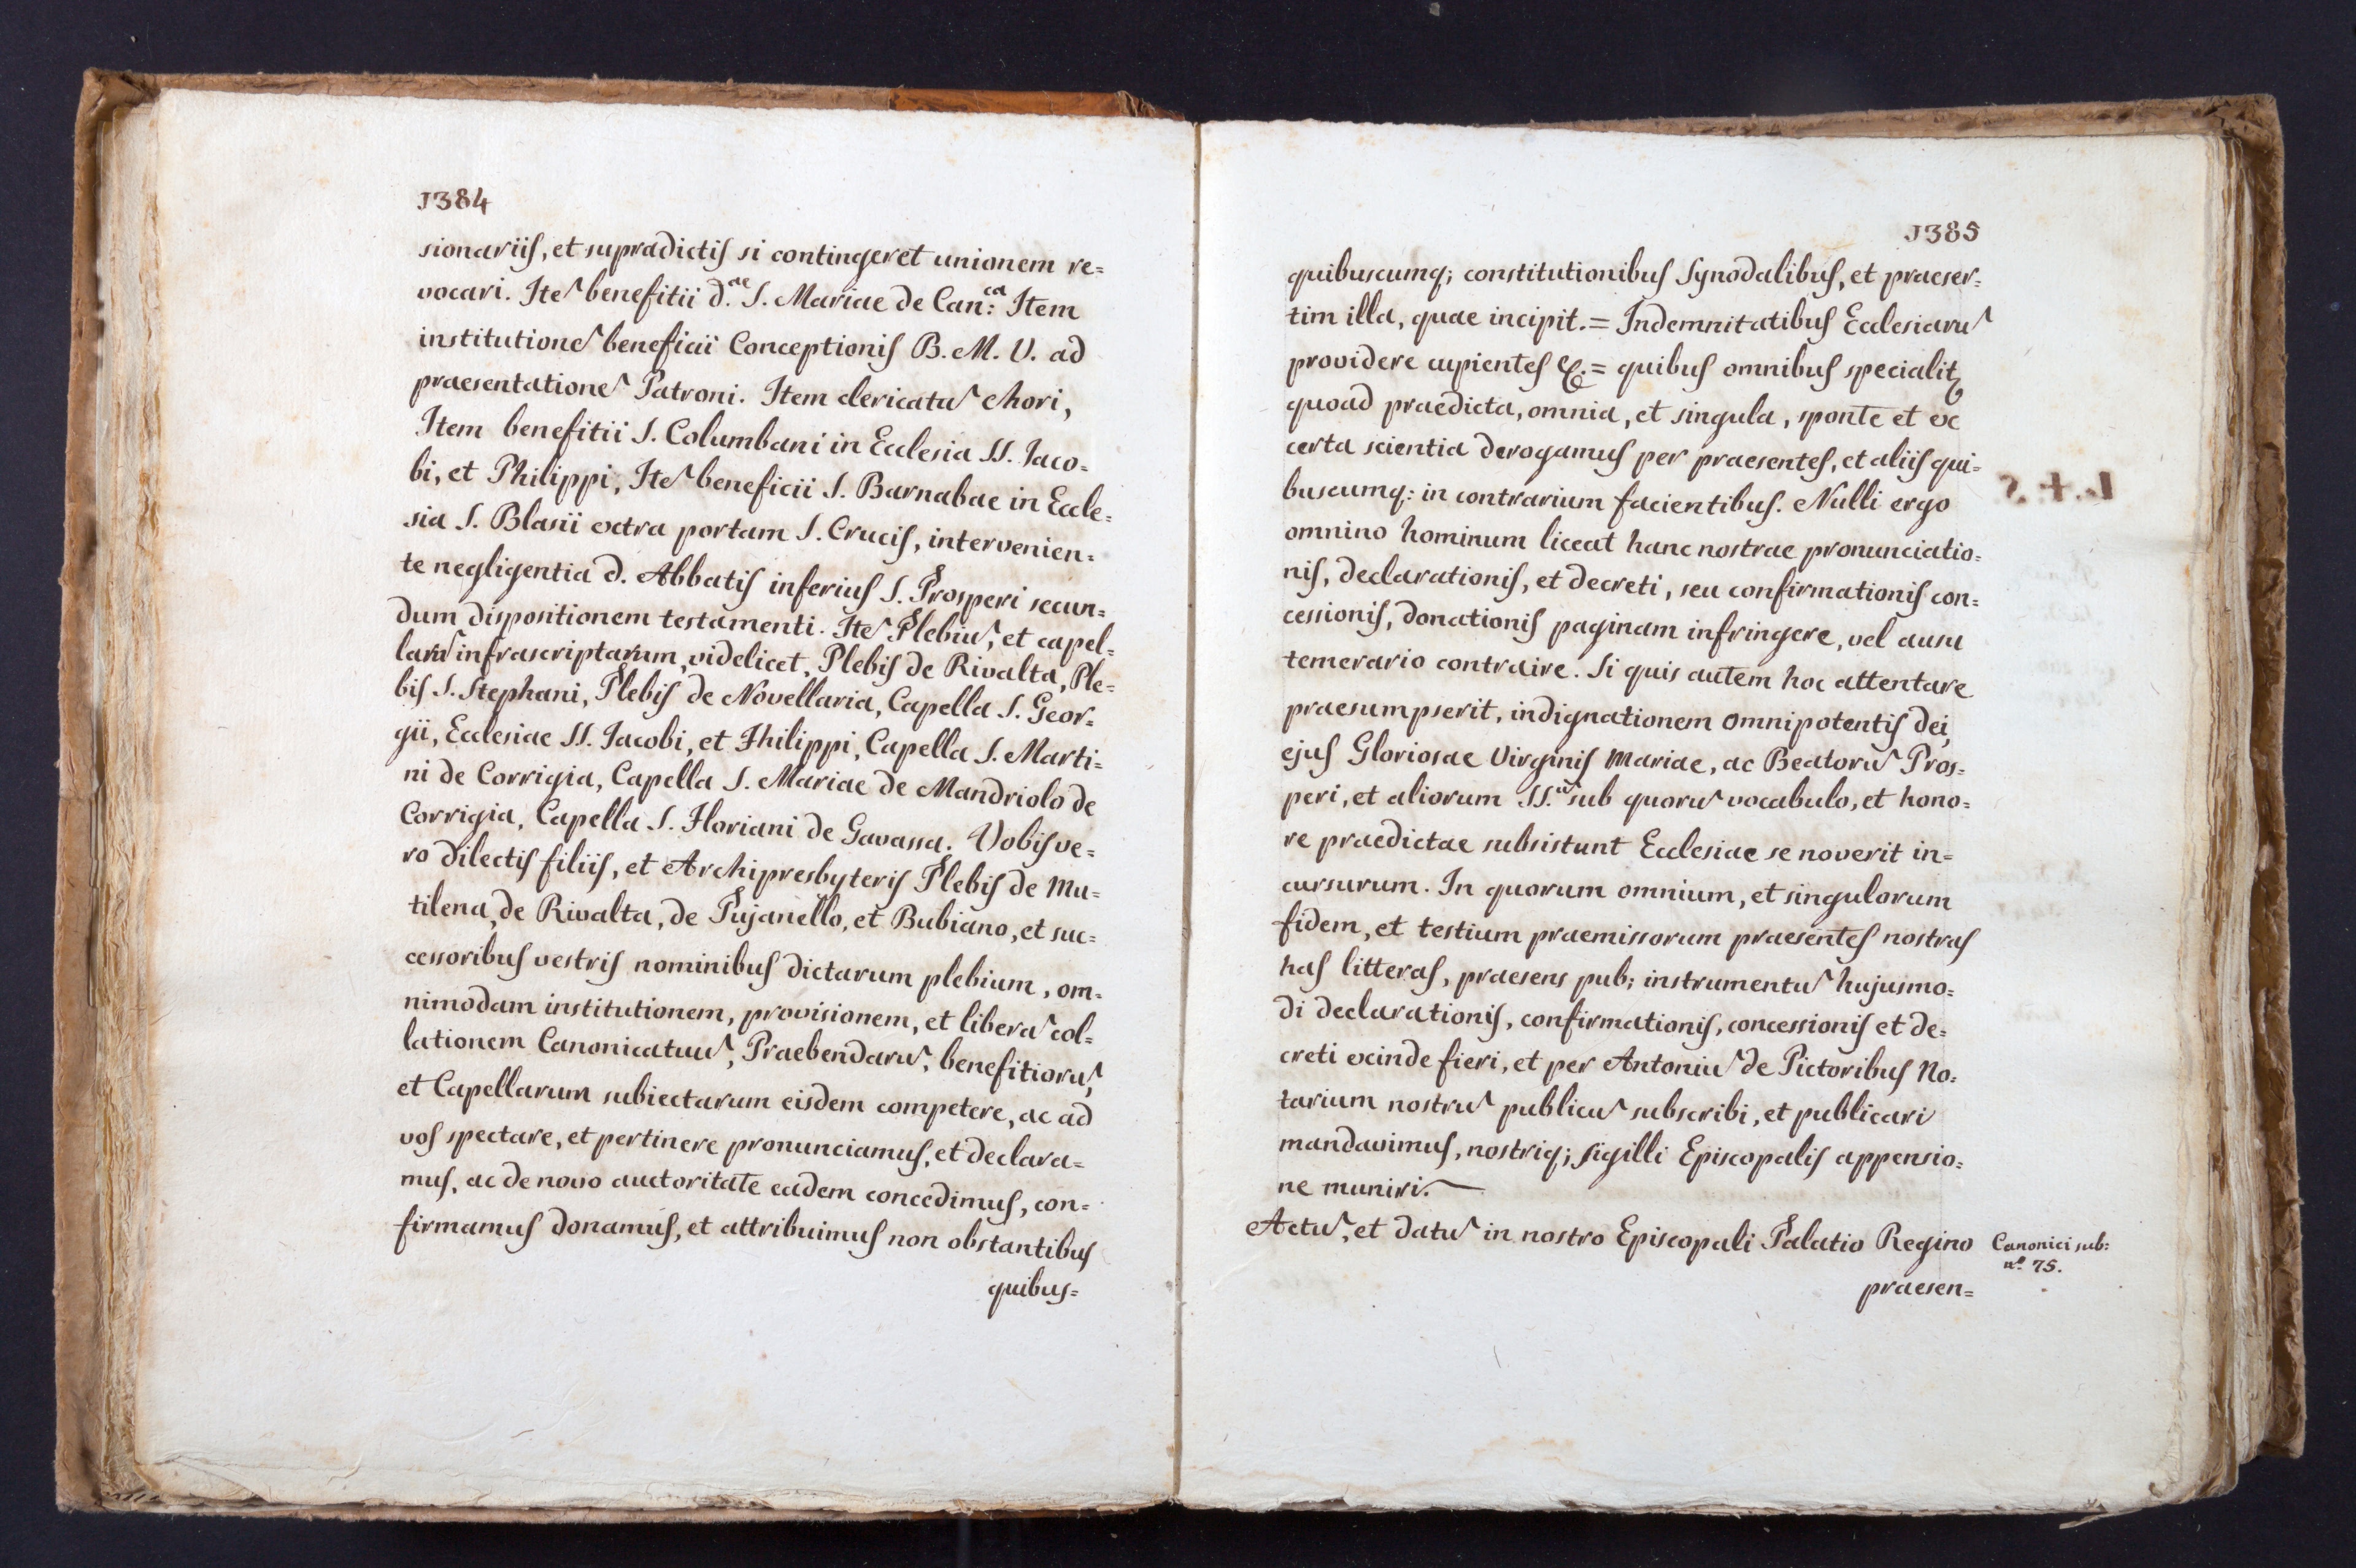 1384
sionariis, et supradictis si contingeret unionem re=
vocari. Ite͂ benefitii d.ae S. Mariae de Can:ca Item
institutione͂ beneficii Conceptionis B. M. V. ad
praesentatione͂ Patroni. Item clericatu͂ chori,
Item benefitii S. Columbani in Ecclesia SS. Iaco=
bi, et Philippi, Ite͂ beneficii S. Barnabae in Eccle=
sia S. Blasii extra portam S. Crucis, intervenien=
te negligentia d. Abbatis inferius S. Prosperi secun=
dum dispositionem testamenti. Ite͂ Plebiu͂, et capel=
laru͂ infrascriptarum, videlicet, Plebis de Rivalta, Ple=
bis S. Stephani, Plebis de Novellaria, Capella S. Geor=
gii, Ecclesiae SS. Iacobi, et Philippi, Capella S. Marti=
ni de Corrigia, Capella S. Mariae de Mandriolo de
Corrigia, Capella S. Floriani de Gavassa. Vobis ve=
ro dilectis filiis, et Archipresbyteris Plebis de Mu=
tilena, de Rivalta, de Pujanello, et Bubiano, et suc=
cessoribus vestris nominibus dictarum plebium, om=
nimodam institutionem, provisionem, et libera͂ col=
lationem Canonicatuu͂, Praebendaru͂, benefitioru͂,
et Capellarum subiectarum eisdem competere, ac ad
vos spectare, et pertinere pronunciamus, et declara=
mus, ac de novo auctoritate eadem concedimus, con=
firmamus donamus, et attribuimus non obstantibus
quibus=
1385
quibuscumq; constitutionibus Synodalibus, et praeser=
tim illa, quae incipit. = Indemnitatibus Ecclesiaru͂
providere cupientes &. = quibus omnibus specialit
quoad praedicta, omnia, et singula, sponte et ex
certa scientia derogamus per praesentes, et aliis qui=
buscumq: in contrarium facientibus. Nulli ergo
omnino hominum liceat hanc nostrae pronunciatio=
nis, declarationis, et decreti, seu confirmationis con=
cessionis, donationis paginam infringere, vel ausu
temerario contraire. Si quis autem hoc attentare
praesumpserit, indignationem omnipotentis dei,
ejus Gloriosae Virginis Mariae, ac Beatoru͂ Pros=
peri, et aliorum SS. sub quoru͂ vocabulo, et hono=
re praedictae subsistunt Ecclesiae se noverit in=
cursurum. In quorum omnium, et singulorum
fidem, et testium praemissorum praesentes nostras
has litteras, praesens pub; instrumentu͂ hujusmo=
di declarationis, confirmationis, concessionis et de=
creti exinde fieri, et per Antoniu͂ de Pictoribus No=
tarium nostru͂ publicu͂ subscribi, et publicari
mandavimus, nostriq; sigilli Episcopalis appensio=
ne muniri.
Actu͂, et datu͂ in nostro Episcopali Palatio Regino
Canonici sub:
n.o 75.
praesen=